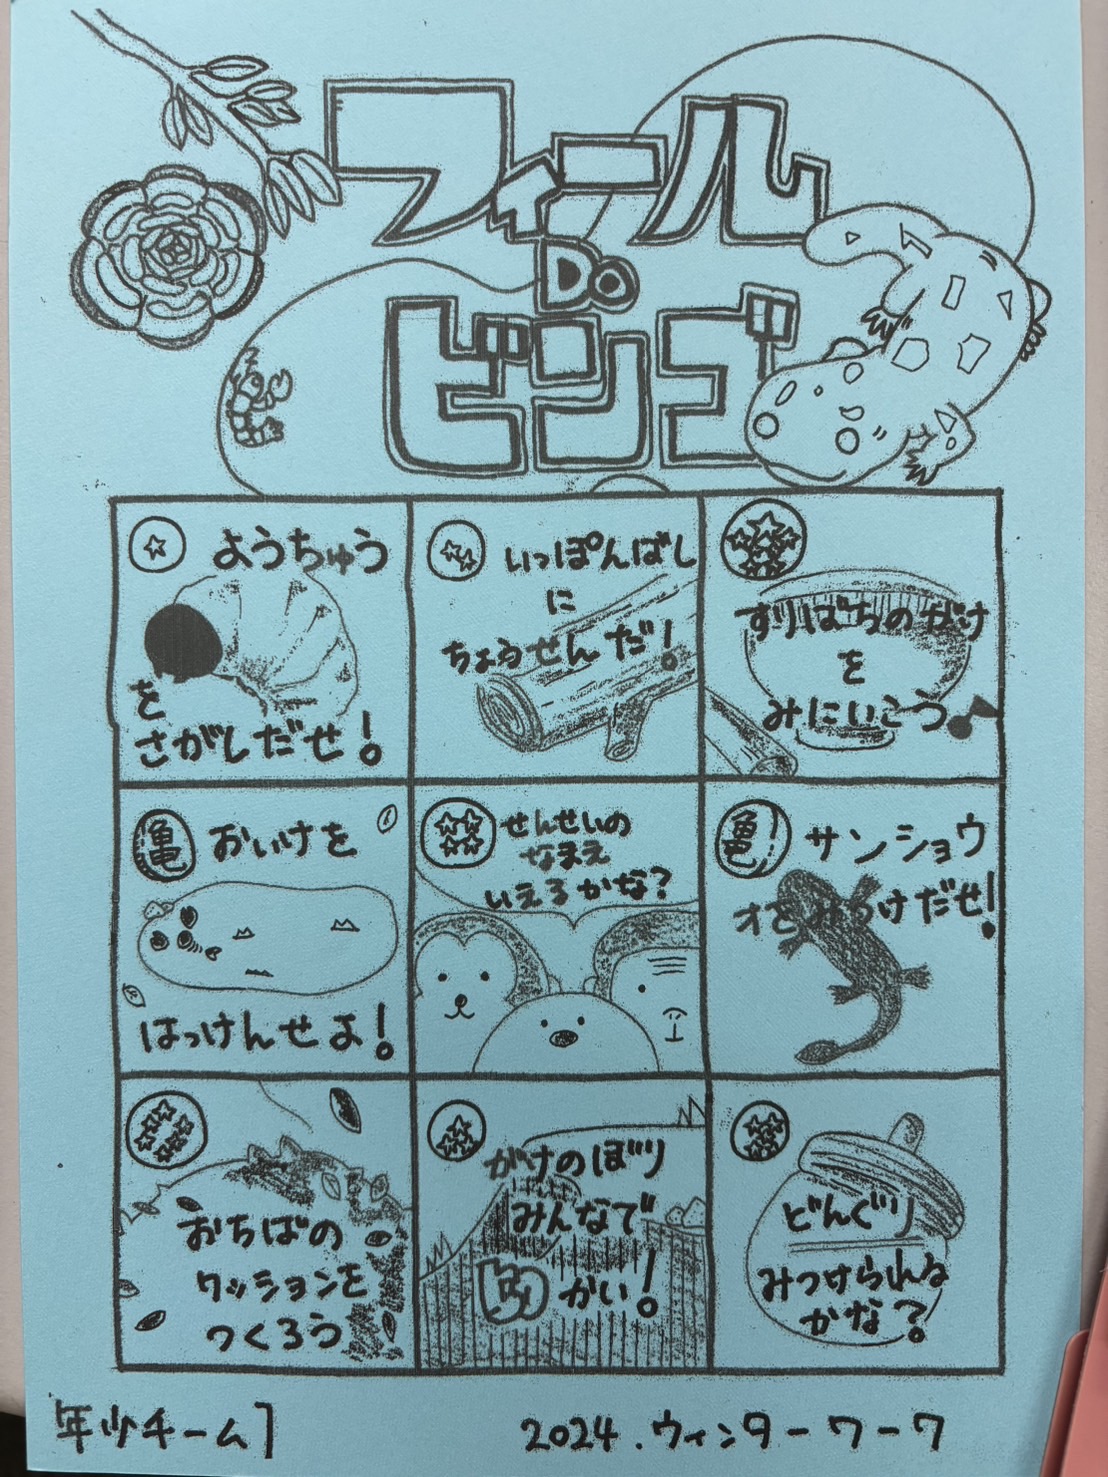 フィール
DO
ビンゴ
ようちゅう
を
さがしだせ!
いっぽんばし
に
ちょうせんだ!
すりばちのがけ
を
みにいこう♪
亀
おいけを
はっけんせよ!
せんせいの
なまえ
いえるかな?
亀
サンショウ
オをみつけだせ!
おちばの
クッションを
つくろう
がけのぼり
みんなで
かい!
どんぐり
みつけられる
かな?
年少チーム
2024.ウィンターワーク